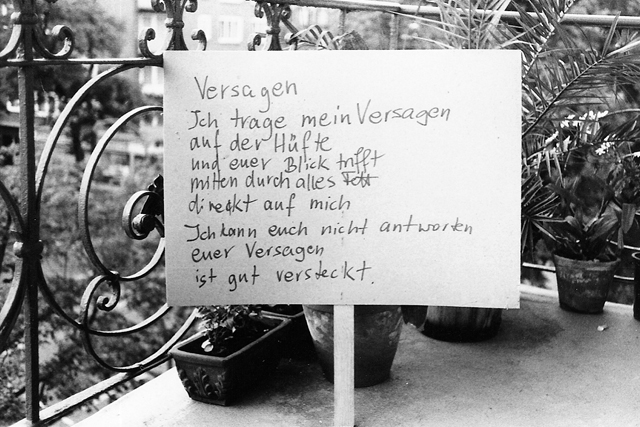 Versagen
Ich trage mein Versagen
auf der Hüfte
und euer Blick trifft
mitten durch alles Fett
direckt auf mich
Ich kann euch nicht antworten
euer Versagen
ist gut versteckt.